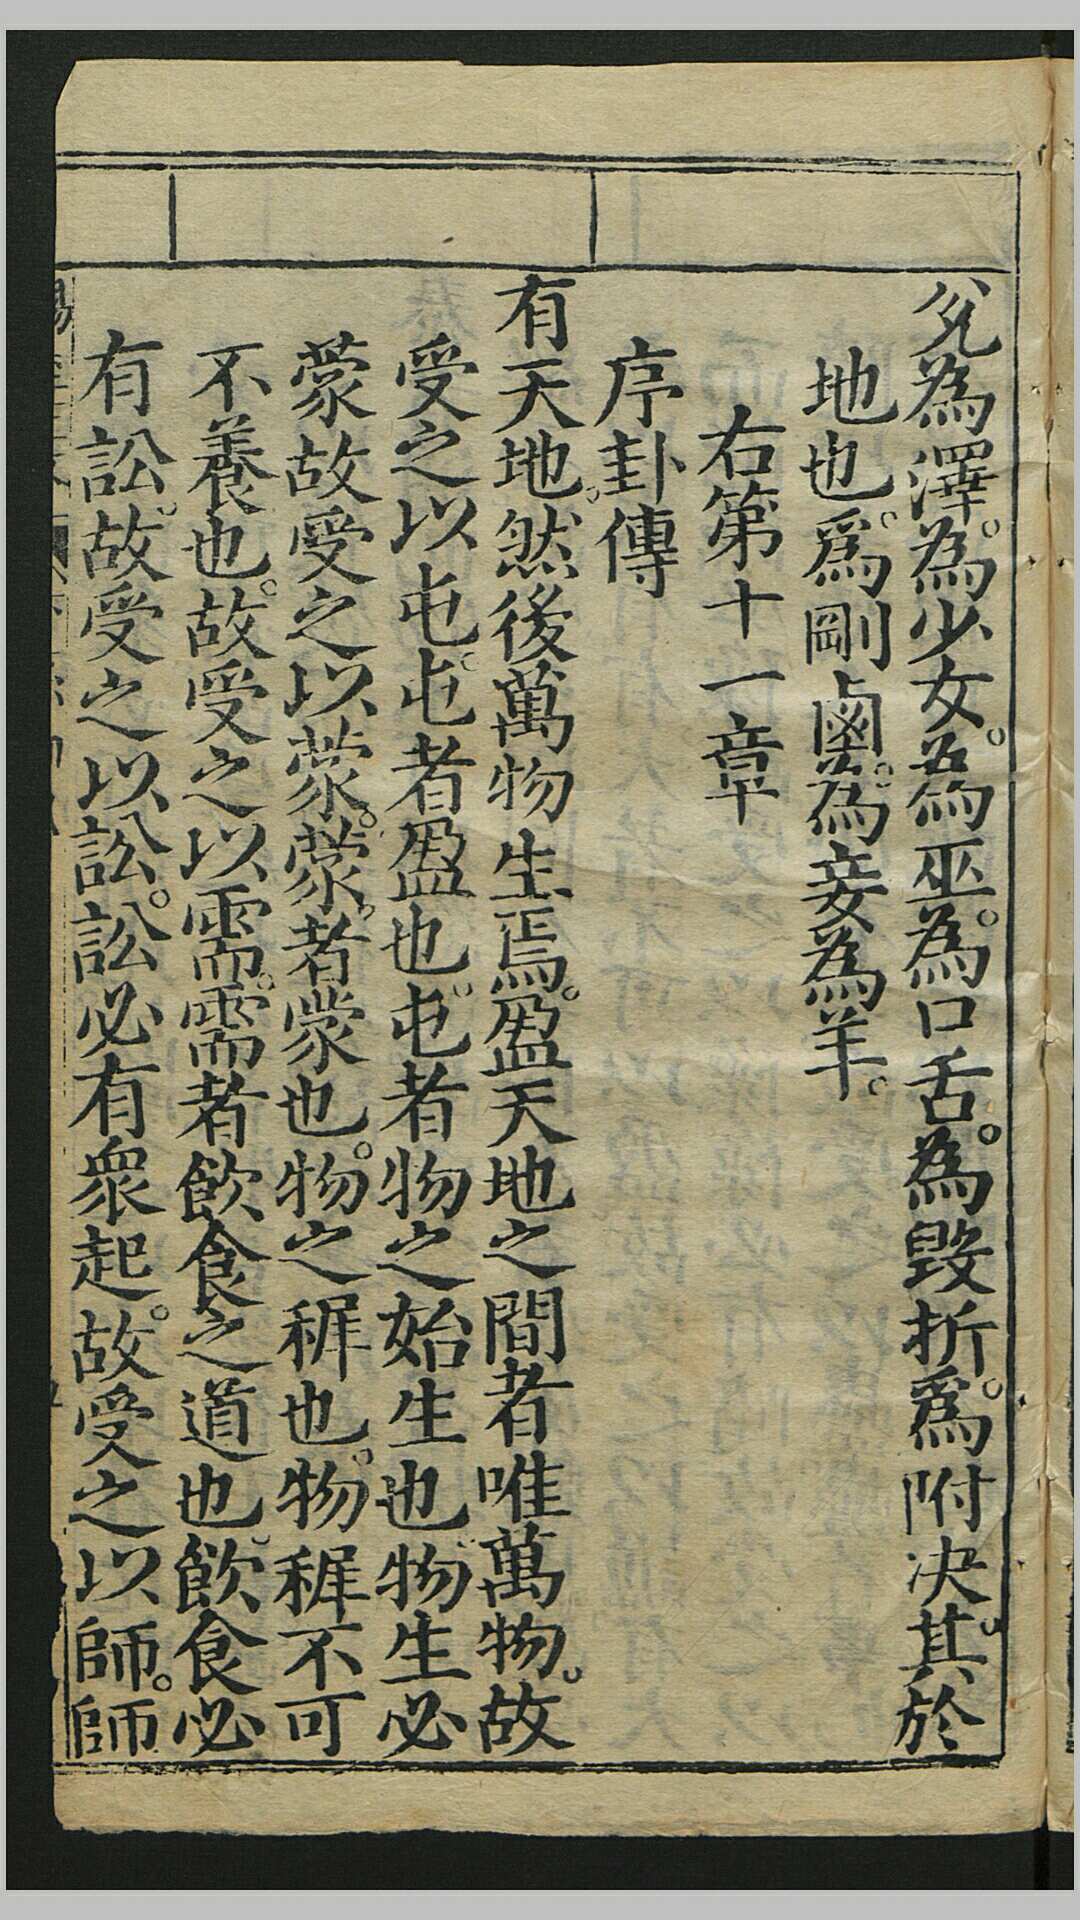 兊為澤。為少女。爲巫。為口舌。為毀折。爲附决。其於
地也。爲剛鹵。為妾為羊。
右第十一章
序卦傳
有天地。然後萬物生焉。盈天地之間者唯萬物。故
受之以屯。屯者盈也。屯者物之始生也。物生必
蒙故受之以蒙。蒙。者蒙也。物之穉也。物穉不可
不養也。故受之以需。需者飲食之道也。飲食必
有訟。故受之以訟。訟必有衆起。故受之以師。師